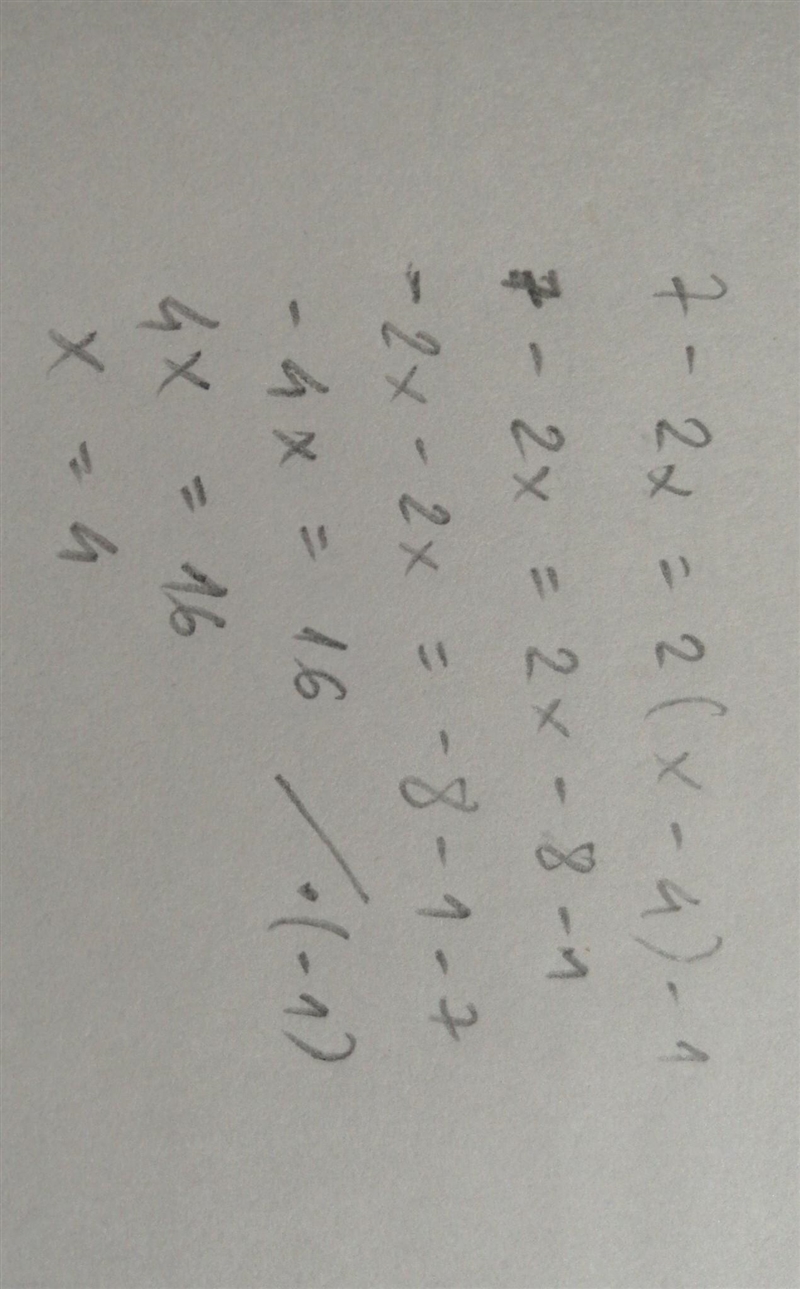 7 - 2x = 2(x - 4) - 1
7 - 2x = 2x - 8 - 1
- 2x - 2x = - 8 - 1 - 7
- 4x = 16 / · (- 1)
4x = 16
x = 4